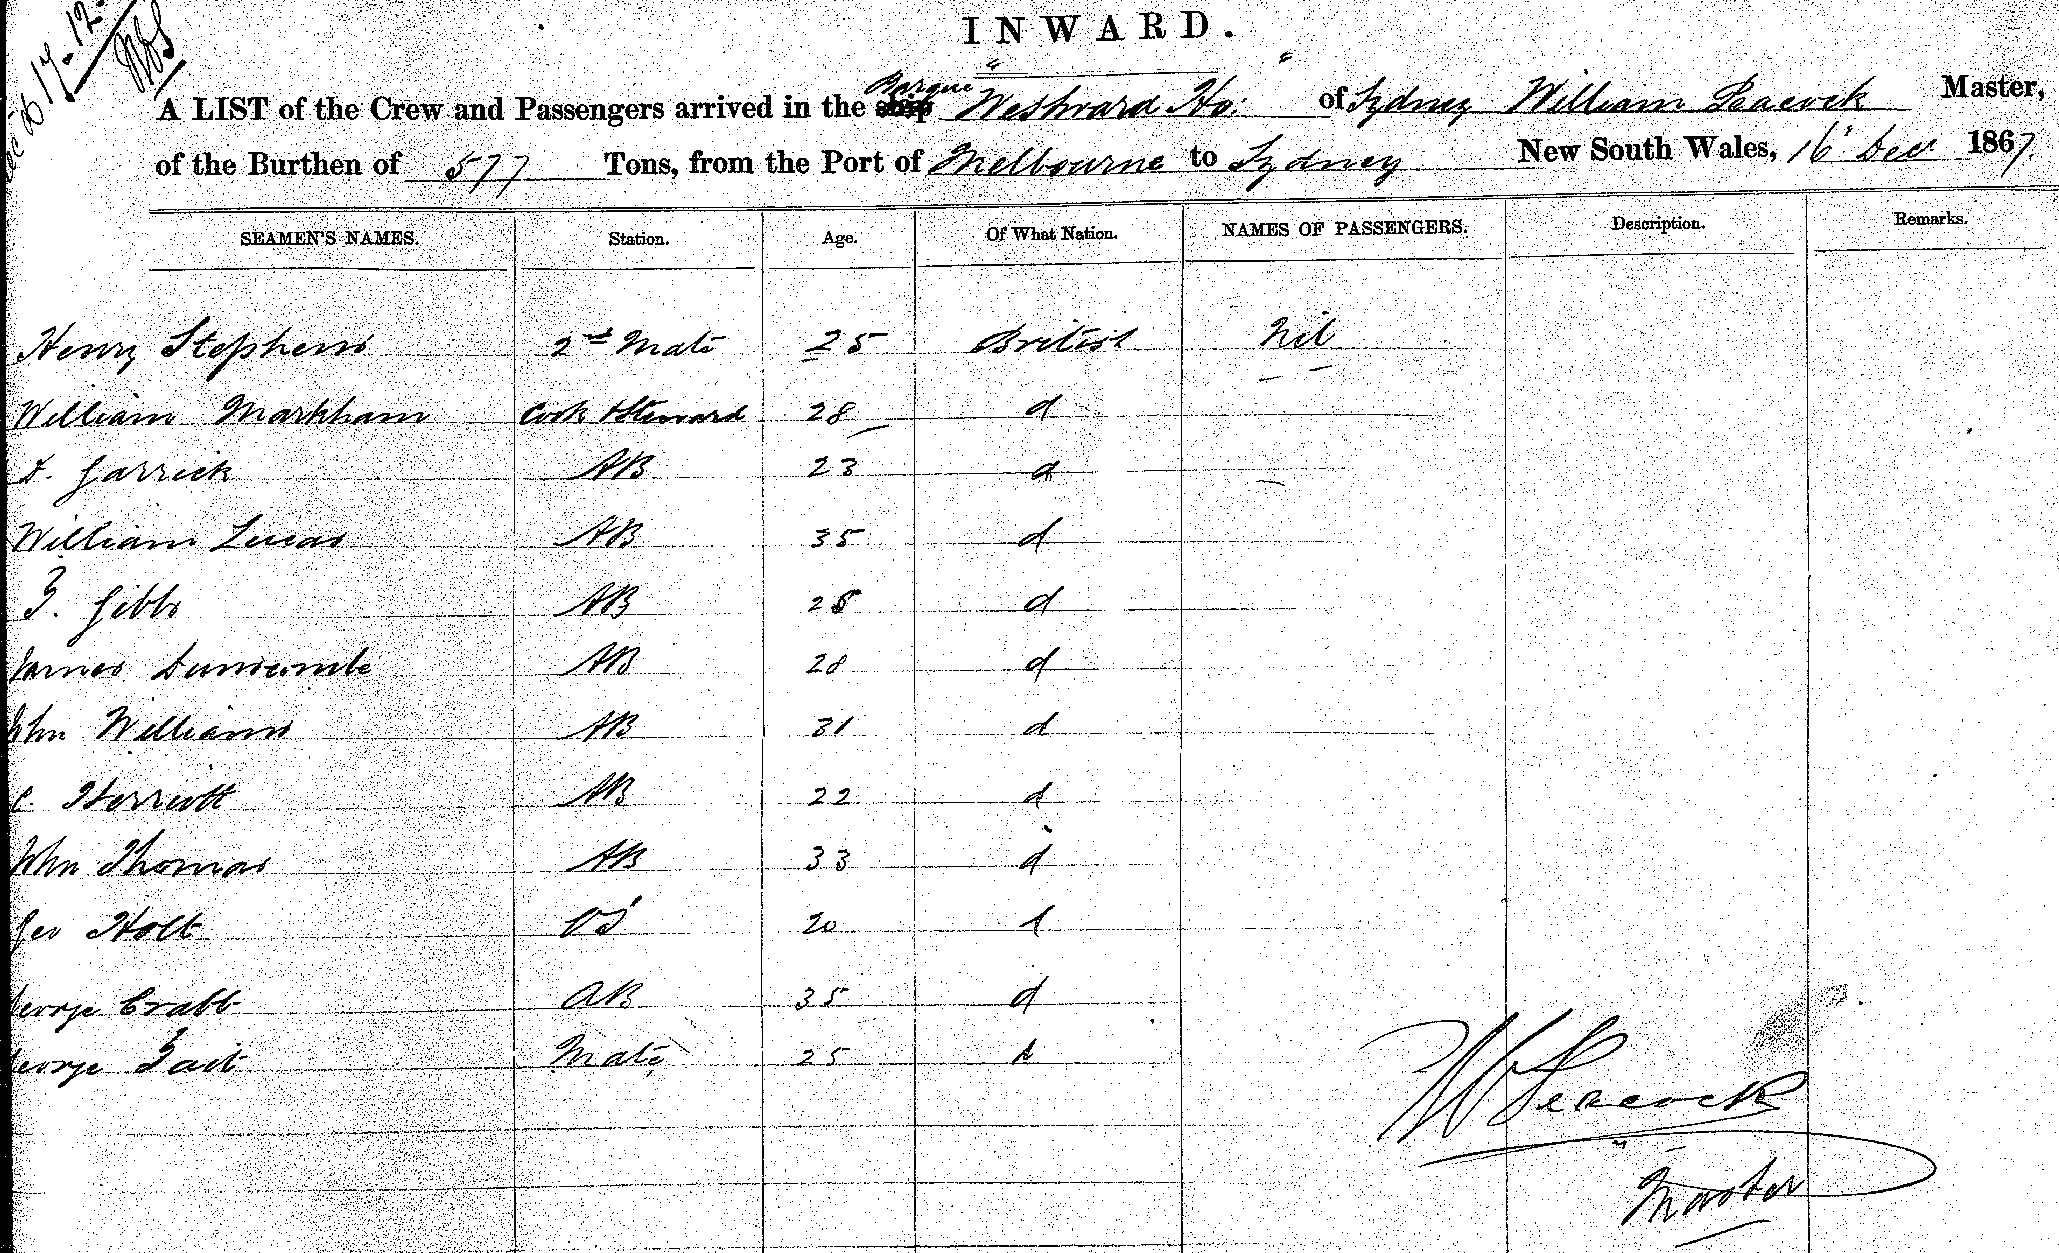 17-12-
INWARD.
A LIST of the Crew and Passengers arrived in the Barque Westward Ho: of Sydney William Peacock Master,
of the Burthen of 577 Tons, from the Port of Melbourne to Sydney New South Wales, 16 Decr 1867.
SEAMEN'S NAMES. Station. Age. Of What Nation. NAMES OF PASSENGERS. Description. Remarks.
Henry Stephens 2nd Mate 25 British Nil
William Markham Cook & Steward 28 d
Garrick AB 23 d
William Lucas AB 35 d
Gibbs AB d
James Duncombe AB 28 d
John Williams AB 31 d
C. Herriott AB 22 d
John Thomas AB 33 d
Geo Holt OS 20 d
George Crabb AB 35 d
George Tait Mate 25 d
W Peacock
Master